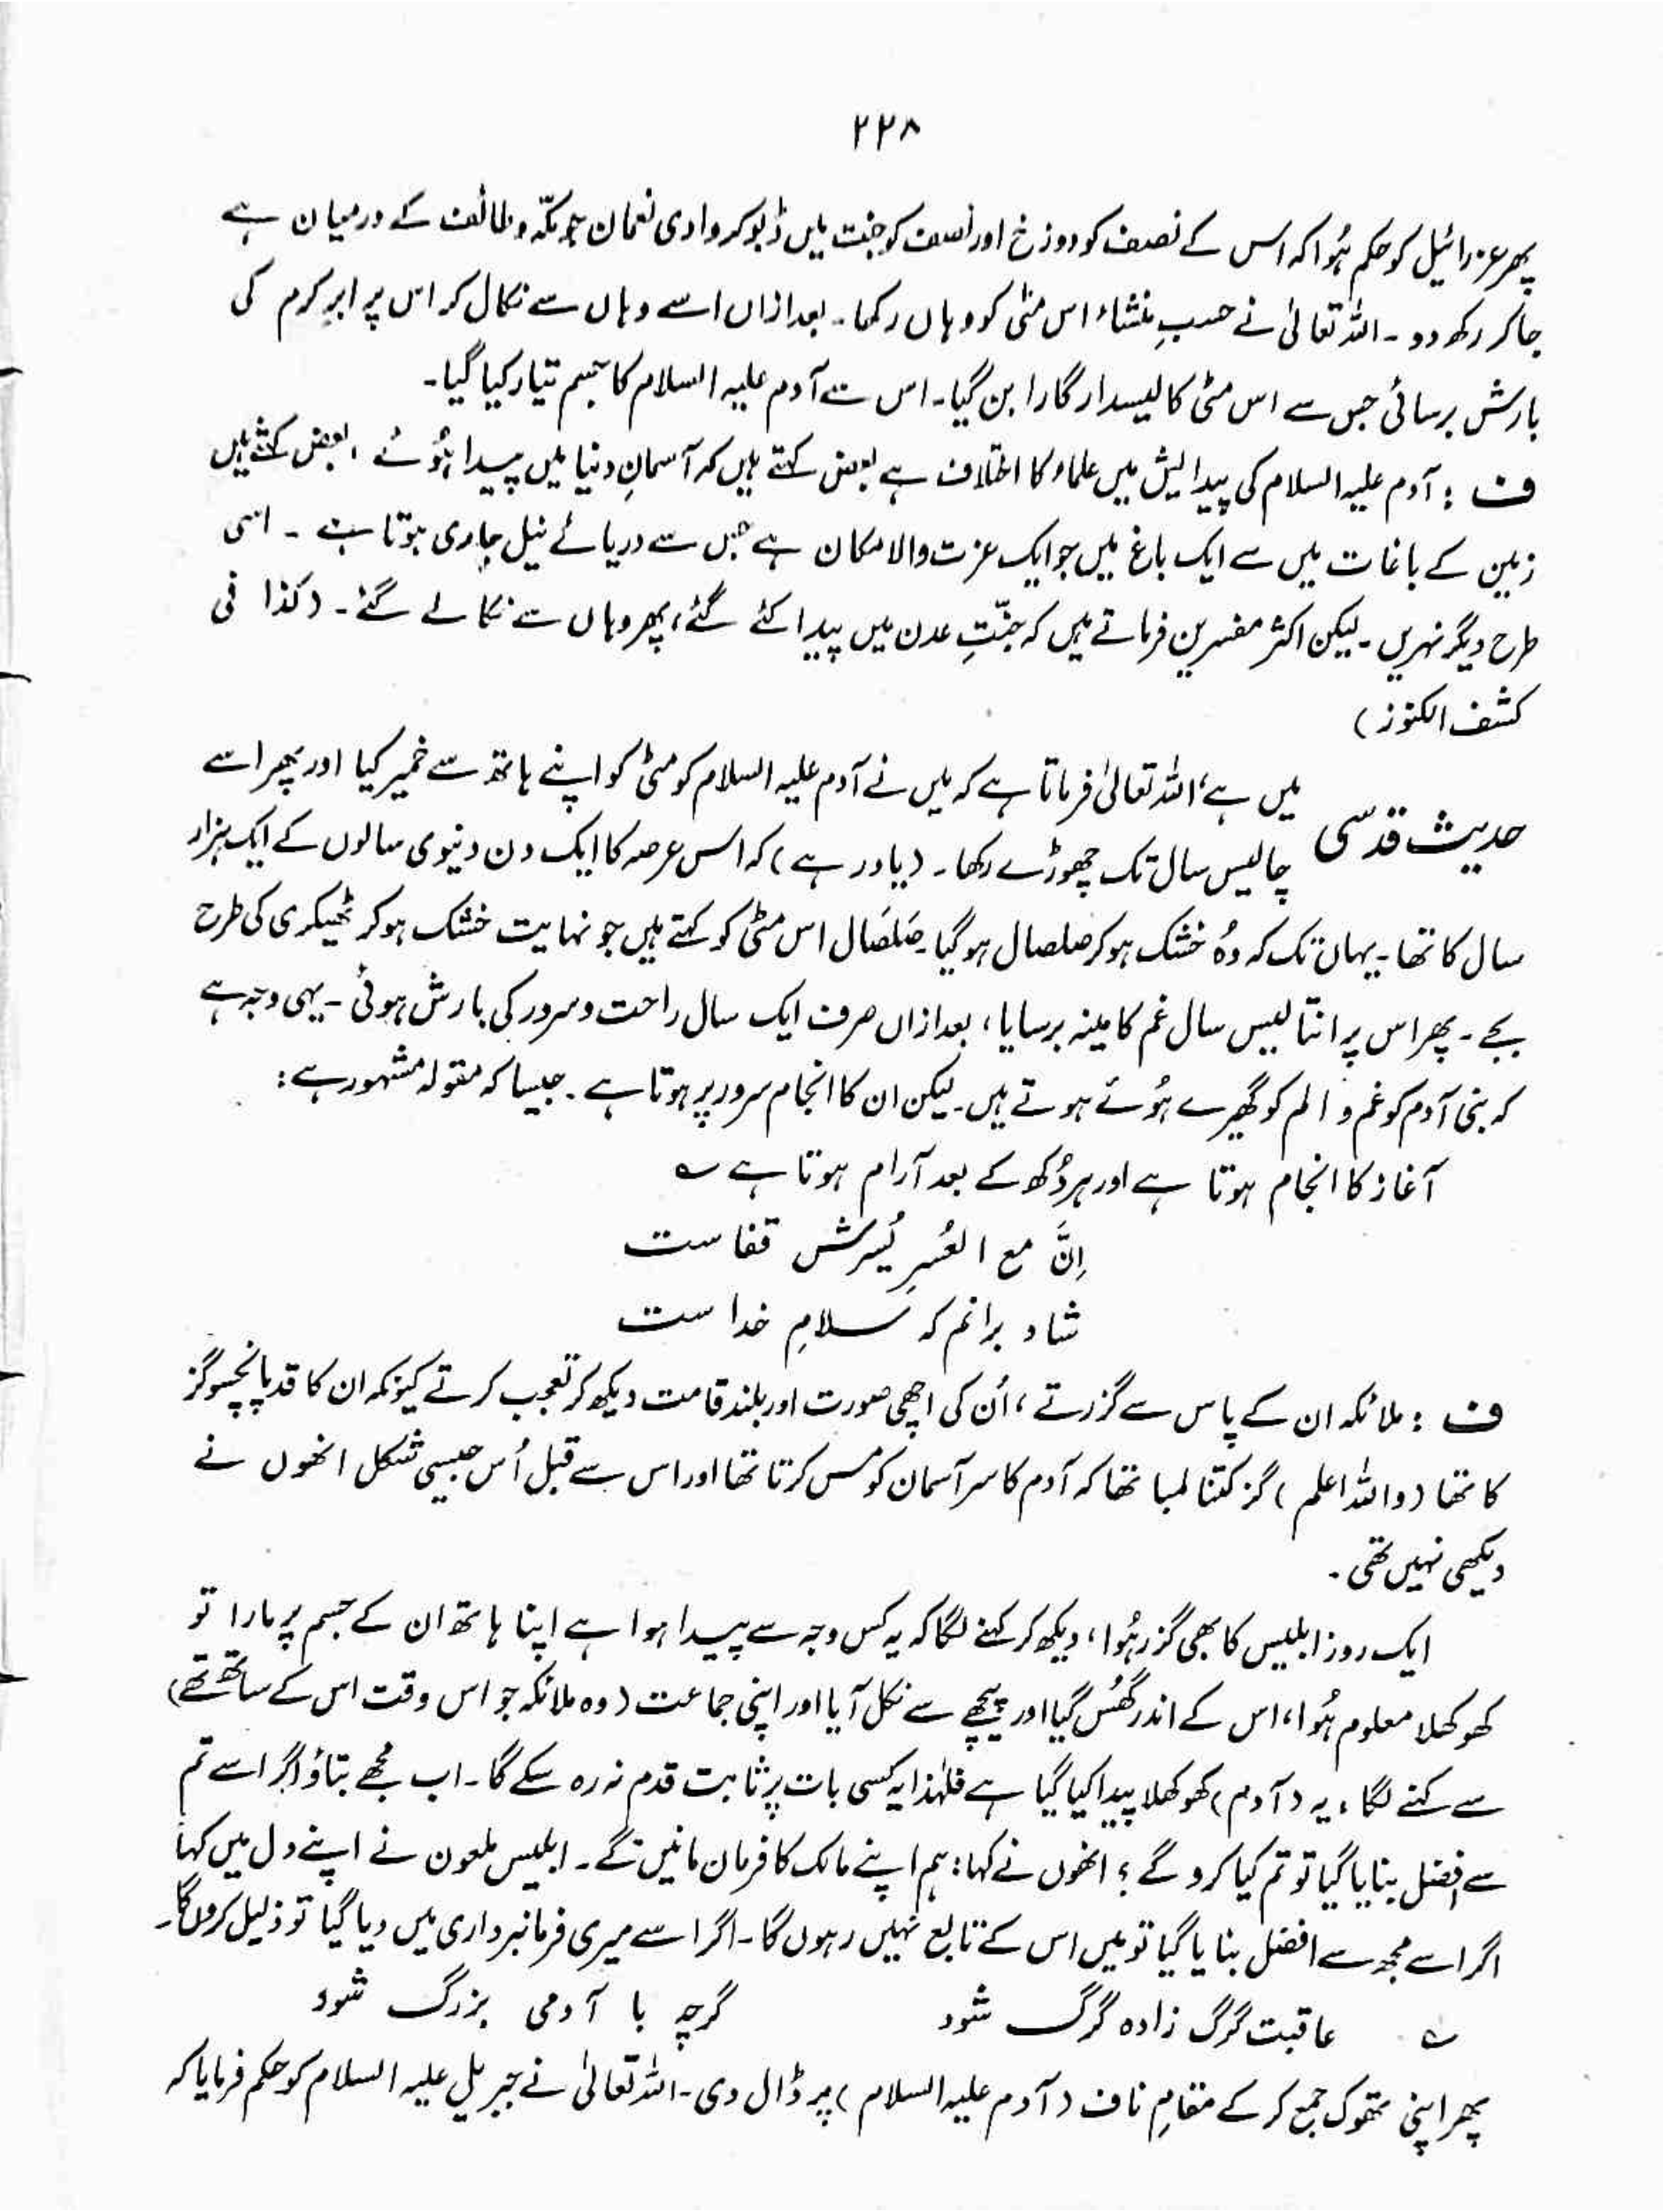 ۲۲۸
پھر عزرائیل کو حکم ہُوا کہ اس کے نصف کو دوزخ اور نصف کو جنت میں ڈبو کر وادی نعمان جو مکّہ و طائف کے درمیان ہے
جا کر رکھ دو ۔ اللہ تعالیٰ نے حسبِ منشاء اس مٹی کو وہاں رکھا ۔ بعد ازاں اسے وہاں سے نکال کر اس پر ابرِ کرم کی
بارش برسائی جس سے اس مٹی کا لیسدار گارا بن گیا ۔ اس سے آدم علیہ السلام کا جسم تیار کیا گیا ۔
ف : آدم علیہ السلام کی پیدائش میں علماء کا اختلاف ہے بعض کہتے ہیں کہ آسمانِ دنیا میں پیدا ہُوئے ، بعض کہتے ہیں
زمین کے باغات میں سے ایک باغ میں جو ایک عزت والا مکان ہے جس سے دریائے نیل جاری ہوتا ہے ۔ اسی
طرح دیگر نہریں ۔ لیکن اکثر مفسرین فرماتے ہیں کہ جنّتِ عدن میں پیدا کئے گئے ، پھر وہاں سے نکالے گئے ۔ ( کذا فی
کشف الکنوز )
حدیث قدسی میں ہے ، اللہ تعالیٰ فرماتا ہے کہ میں نے آدم علیہ السلام کو مٹی کو اپنے ہاتھ سے خمیر کیا اور پھر اسے
چالیس سال تک چھوڑے رکھا ۔ ( یاد رہے ) کہ اس عرصہ کا ایک دن دنیوی سالوں کے ایک ہزار
سال کا تھا ۔ یہاں تک کہ وُہ خشک ہو کر صلصال ہو گیا ۔ صَلصَال اس مٹی کو کہتے ہیں جو نہایت خشک ہو کر ٹھیکری کی طرح
بجے ۔ پھر اس پر انتالیس سال غم کا مینہ برسایا ، بعد ازاں صرف ایک سال راحت و سرور کی بارش ہوئی ۔ یہی وجہ ہے
کہ بنی آدم کو غم و الم کو گھیرے ہُوئے ہوتے ہیں ۔ لیکن ان کا انجام سرور پر ہوتا ہے ۔ جیسا کہ مقولہ مشہور ہے :
آغاز کا انجام ہوتا ہے اور ہر دُکھ کے بعد آرام ہوتا ہے ؎
اِنَّ مع العُسرِ یُسرش قفاست
شاد برانم کہ سلامِ خداست
ف : ملائکہ ان کے پاس سے گزرتے ، اُن کی اچھی صورت اور بلند قامت دیکھ کر تعجب کرتے کیونکہ ان کا قد پانچسو گز
کا تھا ( واللہ اعلم ) گز کتنا لمبا تھا کہ آدم کا سر آسمان کو مس کرتا تھا اور اس سے قبل اُس جیسی شکل انھوں نے
دیکھی نہیں تھی ۔
ایک روز ابلیس کا بھی گزر ہُوا ، دیکھ کر کہنے لگا کہ یہ کس وجہ سے پیدا ہوا ہے اپنا ہاتھ ان کے جسم پر مارا تو
کھوکھلا معلوم ہُوا ، اس کے اندر گھُس گیا اور پیچھے سے نکل آیا اور اپنی جماعت ( وہ ملائکہ جو اس وقت اس کے ساتھ تھے )
سے کہنے لگا ، یہ ( آدم ) کھوکھلا پیدا کیا گیا ہے فلہٰذا یہ کسی بات پر ثابت قدم نہ رہ سکے گا ۔ اب مجھے بتاؤ اگر اسے تم
سے افضل بنایا گیا تو تم کیا کرو گے ؟ انھوں نے کہا : ہم اپنے مالک کا فرمان مانیں گے ۔ ابلیس ملعون نے اپنے دل میں کہا
اگر اسے مجھ سے افضل بنایا گیا تو میں اس کے تابع نہیں رہوں گا ۔ اگر اسے میری فرمانبرداری میں دیا گیا تو ذلیل کروں گا ۔
؎ عاقبت گرگ زادہ گرگ شود گرچہ با آدمی بزرگ شود
پھر اپنی تھوک جمع کر کے مقامِ ناف ( آدم علیہ السلام ) پر ڈال دی ۔ اللہ تعالیٰ نے جبریل علیہ السلام کو حکم فرمایا کہ